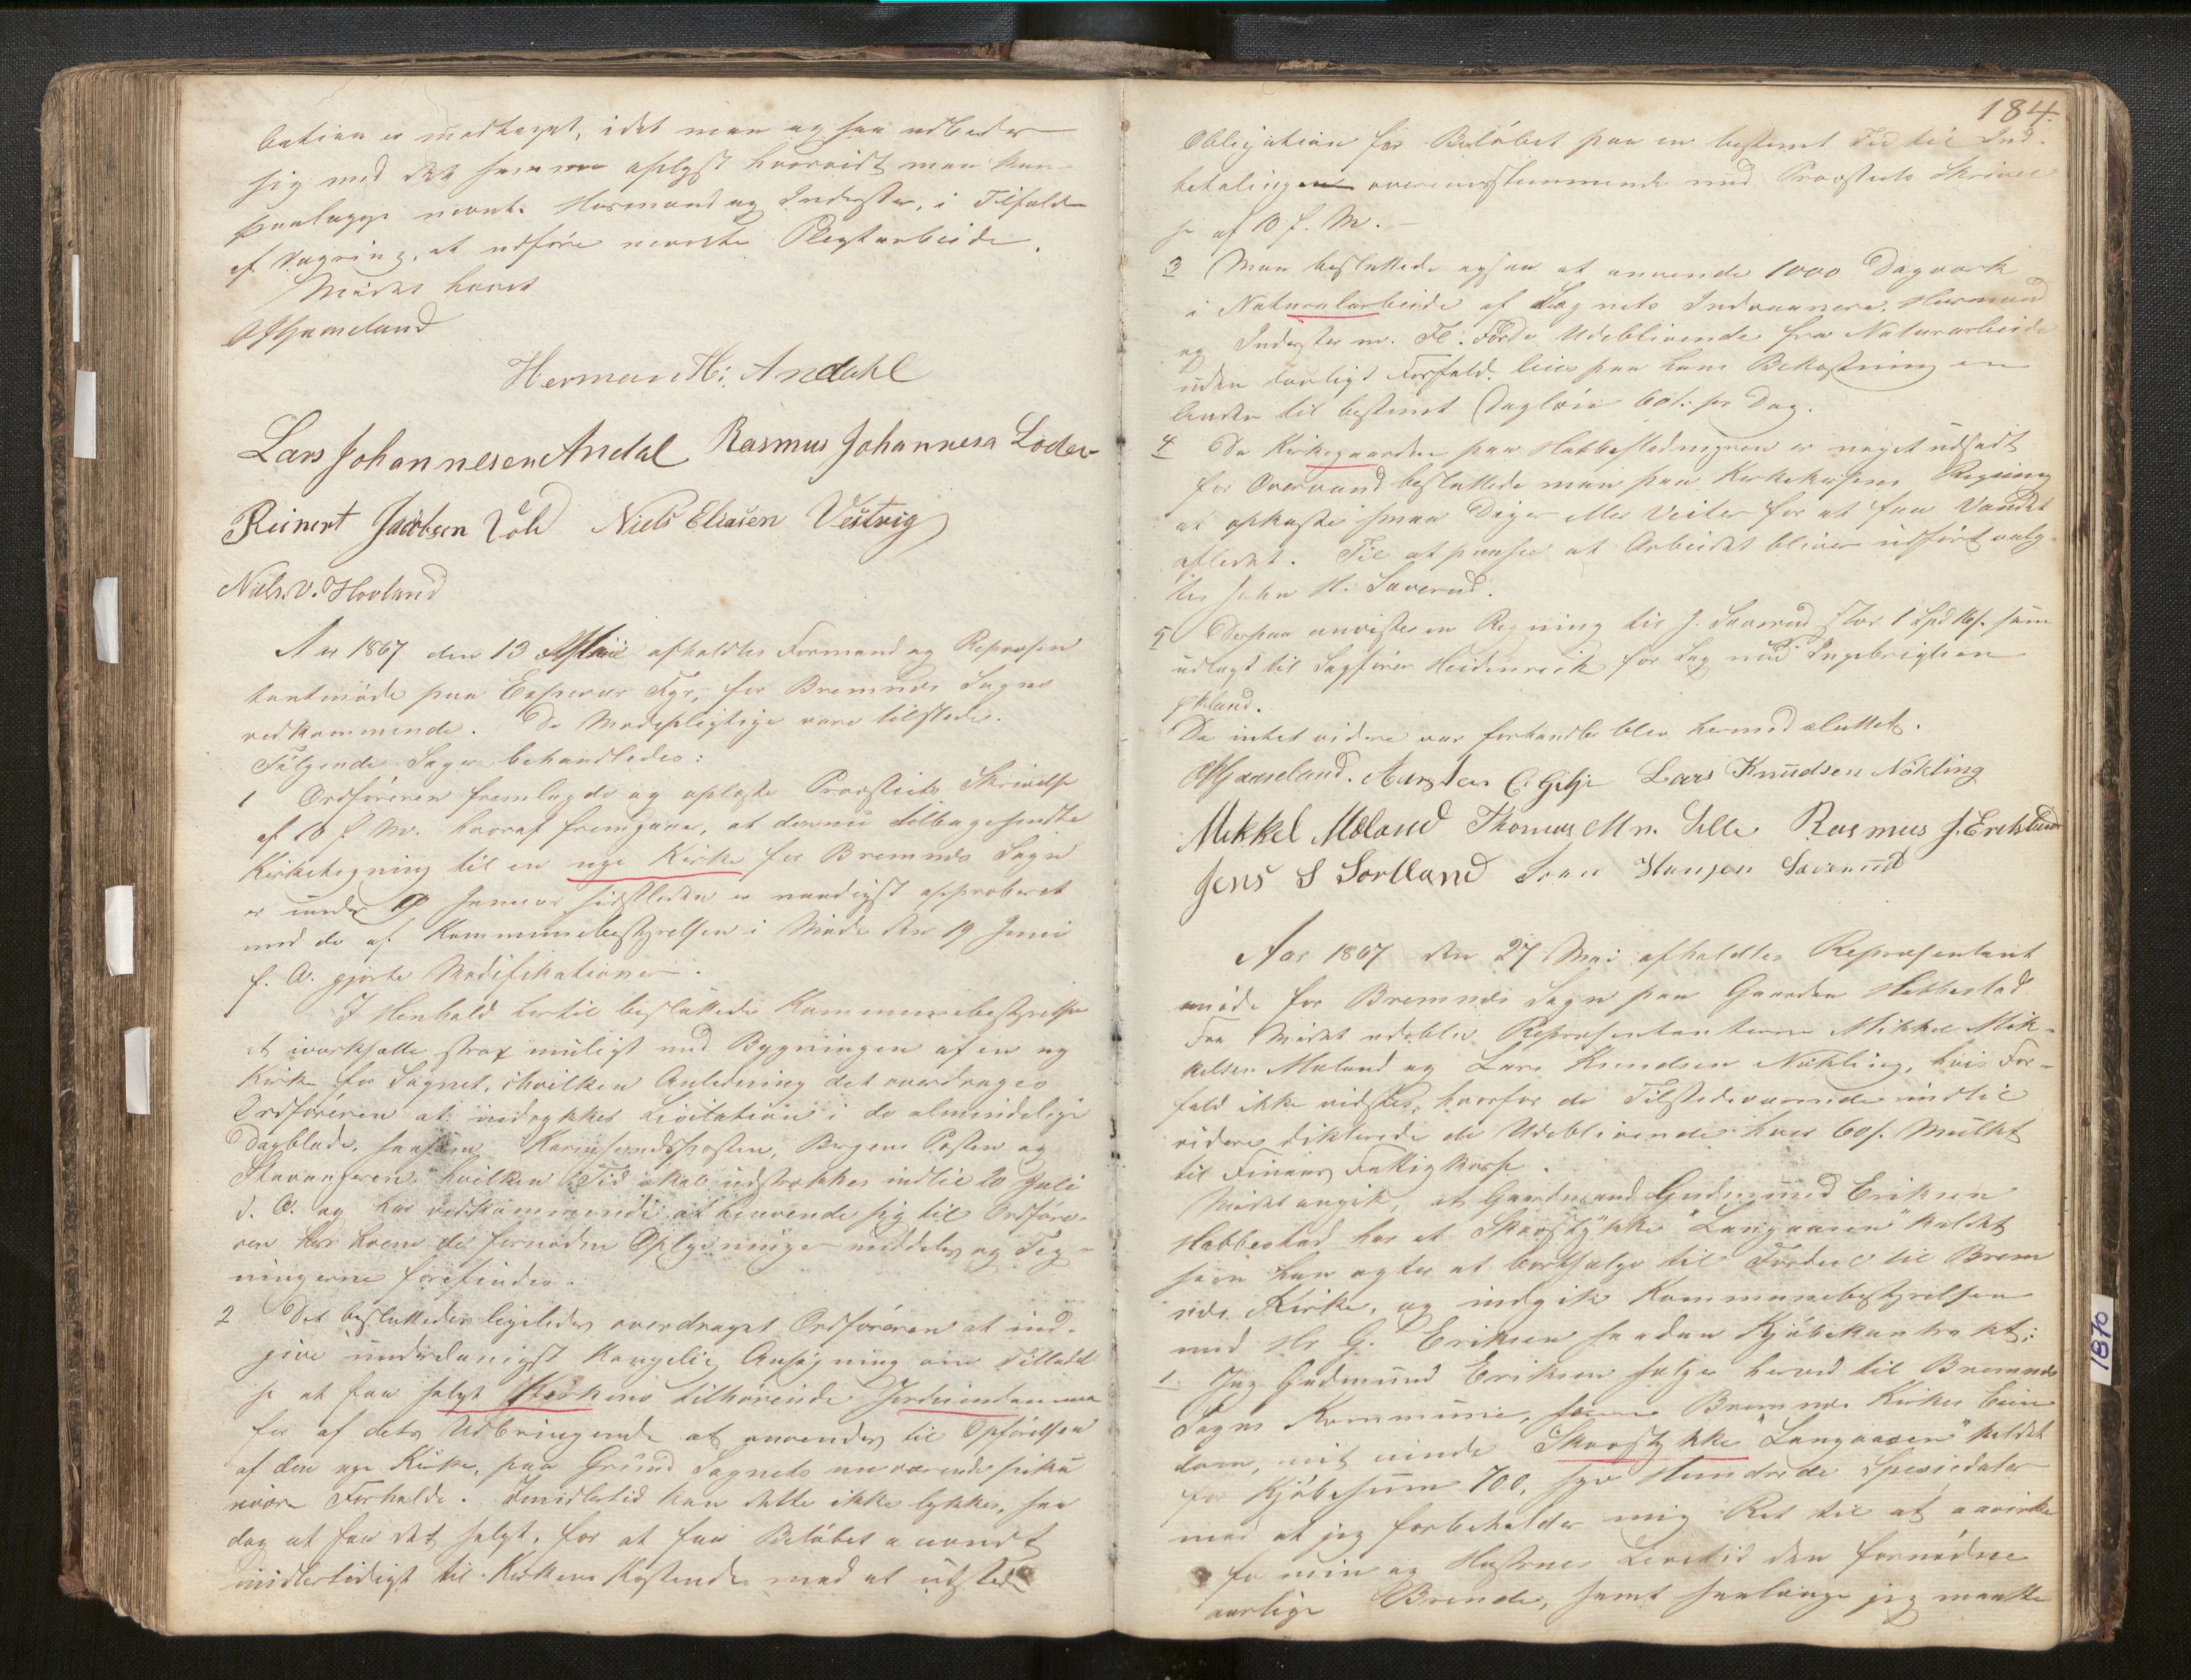 bation er modtaget, idet man og saa udbeder
sig med det samme oplyst hvorvidt man kan
paalægge nævnte Husmænd og Inderster, i Tilfælde
af Vægring, at udføre nævnte Pligtarbeide.
Mødet hævet
Hermund H: Andahl
Lars Johannesen Andal Rasmus Johannesen
Reinert Jacobsen Vold Niels Eliasen Vestvig
Niels. V. Hovland
Aar 1867 den 13 afholdtes Formand og Repræsen
tantmøde paa Espevær Fyr, for Bremnes Sogns
vedkommende. De Mødepligtige vare tilstede.
Følgende Sager behandledes:
1 Ordføreren fremlagde og oplæste Provstiets Skrivelse
af 10 f. M. hvoraf fremgaaer, at den nu tilbagesendte
Kirketegning til en nye Kirke for Bremnes Sogn
er under 9 Januar sidstleden er naadigst approberet
med de af Kommunebestyrelsen i Møde den 19 Juni
f. A. gjorte Modifikationer.
I Henhold hertil besluttede Kommunebestyrelsen
at iværksætte strax muligt med Bygningen af en ny
Kirke for Sognet, i hvilken Anledning det overdrages
Ordføreren at indrykkes Licitation i de almindelige
Dagblade, saasom Karmsundsposten, Bergens Posten og
Stavangeren, hvilken Tid skal udstrækkes indtil 20 Juli
d. A. og har vedkommende at henvende sig til Ordføre-
ren hos hvem de fornødne Oplysninger meddeles og Teg-
ningerne forefindes.
2 Det besluttedes ligeledes overdraget Ordføreren at ind-
give underdanigst kongelig Ansøgning om Tilladel
se at faa solgt Kirkens tilhørende Jordeiendomme
for af dets Udbringende at anvendes til Opførelsen
af den nye Kirke, paa Grund Sognets nuværende
Forholde. Imidlertid kan dette ikke lykkes, saa
dog at faa det solgt, for at faa Beløbet anvendt
midlertidigt til Kirkens Kostende mod at udstede
184.
Obligation for Beløbet paa en bestemt Tid til Ind-
betalingen overensstemmende med Provstiets Skrivel
se af 10 f. M. –
3 Man besluttede ogsaa at anvende 1000 Dagværk
i Naturalarbeide af Sognets Indvaanere, Husmænd
og Inderster m. Fl. Forde Udeblivende fra Naturarbeide
uden lovligt Forfald, leies paa hans Bekostning en
anden til bestemt Dagløn 60 s. pr Dag.
4 Da Kirkegaarden paa Habbestadmyren er noget udsadt
for Overvand besluttede man paa Kirkekassens Regning
at opkaste smaa Diger eller Veiter for at faa Vandet
afledet. Til at paasee at Arbeidet bliver udført valg-
tes John H. Saverud.
5 Derpaa anvistes en Regning til J. Saverud stor 1 Spd 16 s. som
udlagt til Sagfører Heidenreich for Sag mod Ingebrigtsen
Da intet videre var forhandle blev hermed sluttet.
Aarsten C. Gilje Lars Knudsen Nökling
Mikkel Mæland Thomas Mn. Lille Rasmus J. Eriksland
Jens S Sortland Hansen Saverud
Aar 1867 den 27 Mai afholdtes Repræsentant
møde for Bremnes Sogn paa Gaarden Habbestad
Fra Mødet udeblev Repræsentanterne Mikkel Mik-
kelsen Mæland og Lars Knudsen Nökling, hvis For-
fald ikke vidstes, hvorfor de Tilstedeværende indtil
videre dikterede de Udeblivende hver 60 s. Mulkt
til Finaas Fattigkasse.
Mødet angik, at Gaardmand Gudmund Eriksen
Habbestad har et Skovstykke "Langaasen" kaldet
som han agter at bortsælge til Fordeel til Brem
nes Kirke, og indgik Kommunebestyrelsen
med Hr G. Eriksen saadan Kjøbekontrakt:
1. Jeg Gudmund Eriksen sælger herved til Bremnes
Sogns Kommune, Bremnes Kirkes Eien
dom, mit eiende Skovstykke "Langaasen" kaldet
for Kjøbesum 700, syv Hundrede Speciedaler
mod at jeg forbeholder mig Ret til at aavirke
for min og Hustrues Levetid den fornødne
aarlige Brende, samt saalænge jeg maatte
1870